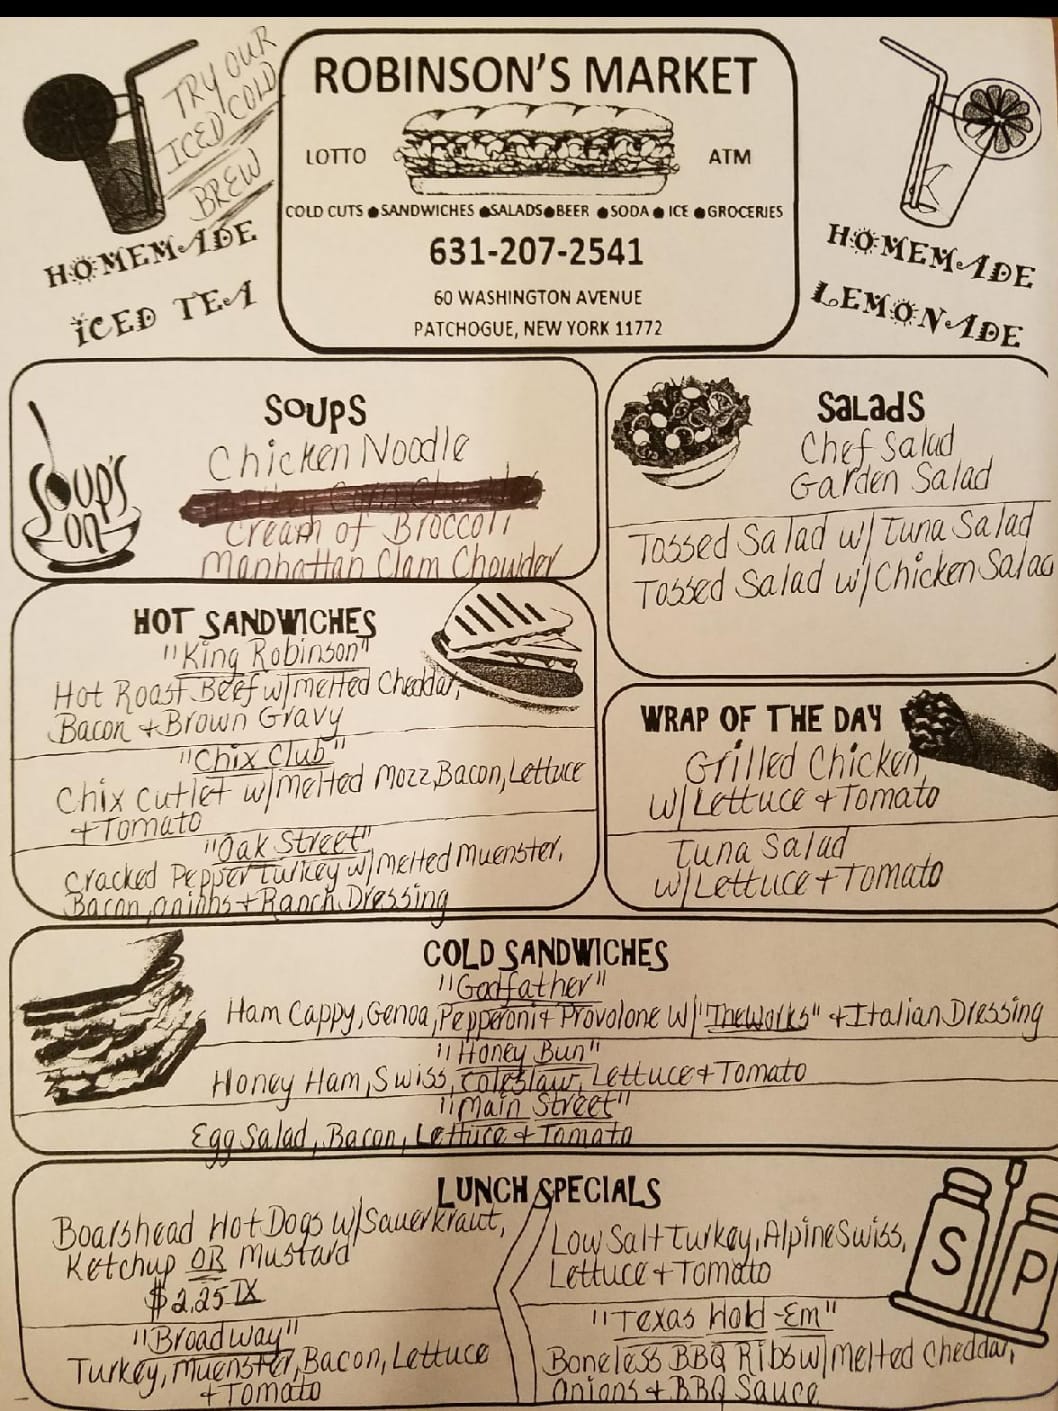 TRY OUR
ICED COLD
BREW
HOMEMADE
ICED TEA
ROBINSON'S MARKET
LOTTO
ATM
COLD CUTS ● SANDWICHES ● SALADS ● BEER ● SODA ● ICE ● GROCERIES
631-207-2541
60 WASHINGTON AVENUE
PATCHOGUE, NEW YORK 11772
HOMEMADE
LEMONADE
SOUP'S
ON
SOUPS
Chicken Noodle
Cream of Broccoli
Manhattan Clam Chowder
SALADS
Chef Salad
Garden Salad
Tossed Salad w/ Tuna Salad
Tossed Salad w/ Chicken Salad
HOT SANDWICHES
"King Robinson"
Hot Roast Beef w/ melted Cheddar,
Bacon + Brown Gravy
"Chix Club"
Chix cutlet w/ melted Mozz, Bacon, Lettuce
+ Tomato
"Oak Street"
Cracked Pepper Turkey w/ melted Muenster,
Bacon, onions + Ranch Dressing
WRAP OF THE DAY
Grilled Chicken,
w/ Lettuce + Tomato
Tuna Salad
w/ Lettuce + Tomato
COLD SANDWICHES
"Godfather"
Ham Cappy, Genoa, Pepperoni + Provolone w/ "The Works" + Italian Dressing
"Honey Bun"
Honey Ham, Swiss, Coleslaw, Lettuce + Tomato
"Main Street"
Egg Salad, Bacon, Lettuce + Tomato
LUNCH SPECIALS
Boarshead Hot Dogs w/ Sauerkraut,
Ketchup OR Mustard
$2.25 TX
"Broadway"
Turkey, Muenster, Bacon, Lettuce
+ Tomato
Low Salt Turkey, Alpine Swiss,
Lettuce + Tomato
"Texas Hold-Em"
Boneless BBQ Ribs w/ melted Cheddar,
Onions + BBQ Sauce
S
P